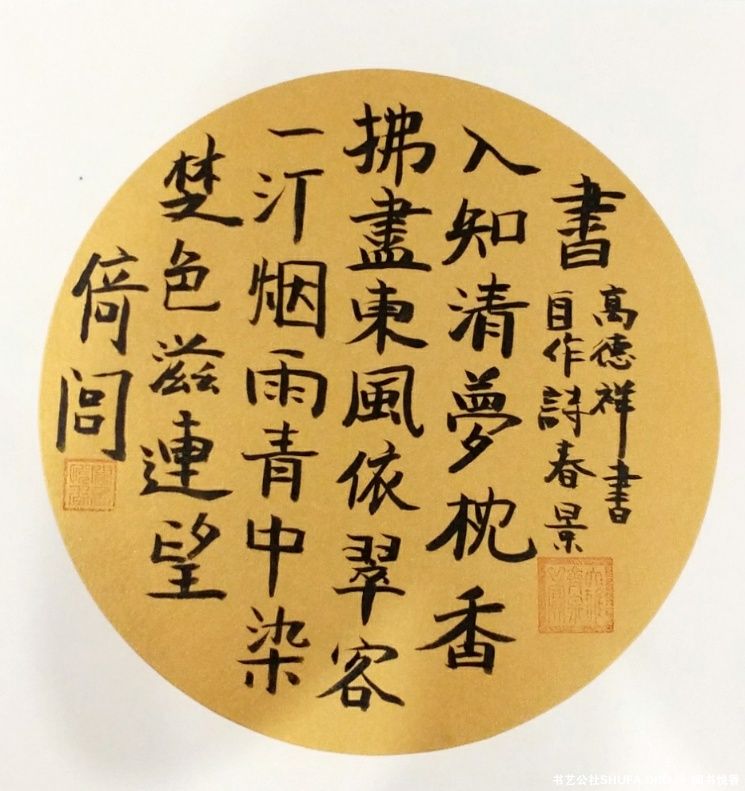 倚閭
楚色滋連望
一汀烟雨青中染
拂盡東風依翠客
入知清夢枕香
書
自作詩春景
高德祥書
书艺公社SHUFA